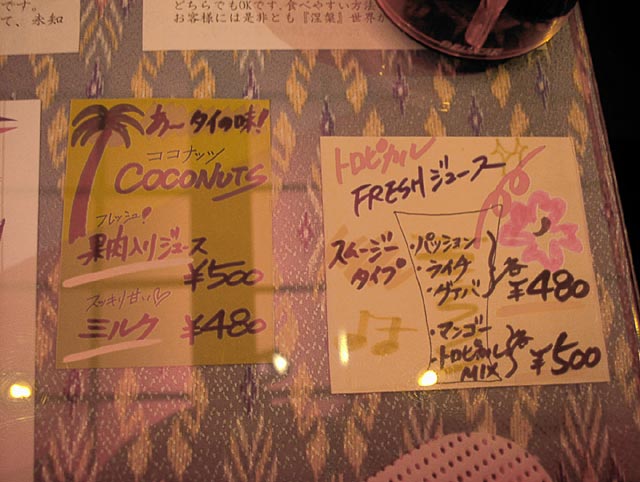 です。
て、未知
どちらでもOKです。食べやすい方法
お客様には是非とも『涅槃』世界が
あ〜タイの味!
ココナッツ
COCONUTS
フレッシュ!
果肉入りジュース
¥500
スッキリ甘い♡
ミルク ¥480
トロピカル
FRESHジュース
スムージー
タイプ
・パッション
・ライチ
・グァバ
各
¥480
・マンゴー
・トロピカル
MIX
各
¥500